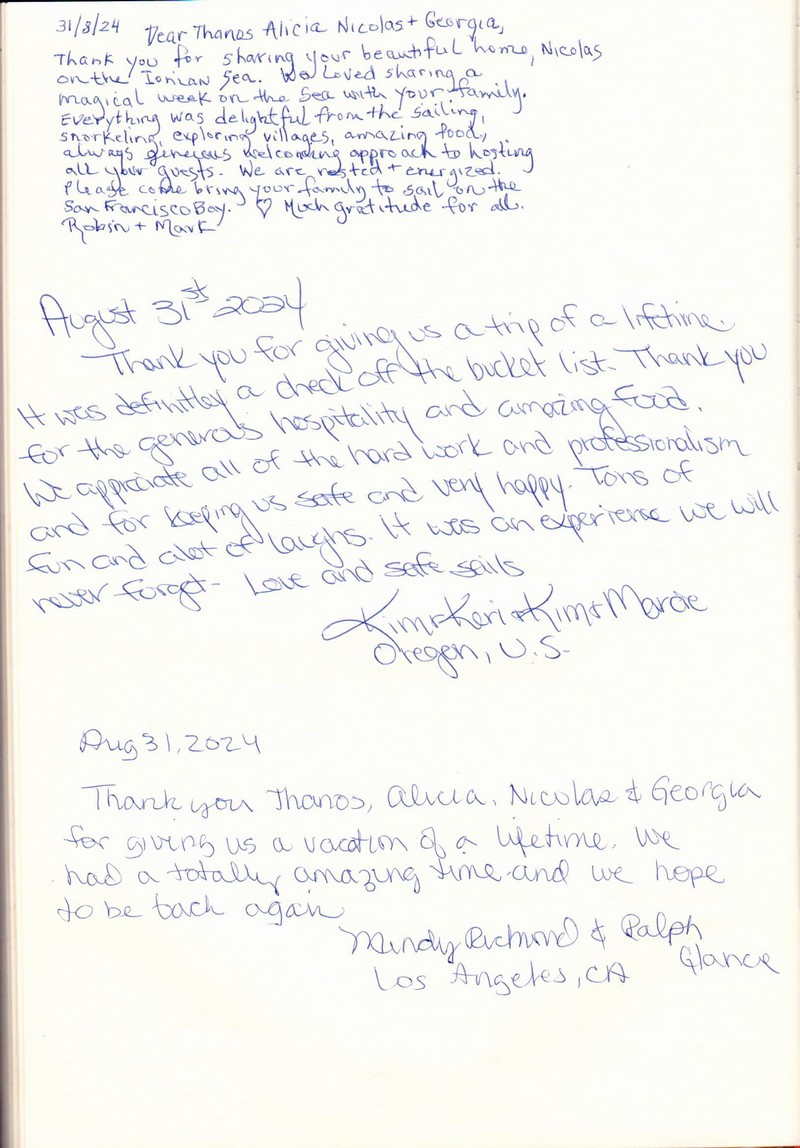 31/8/24 Dear Thanos Alicia Nicolas + Georgia,
Thank you for sharing your beautiful home, Nicolas
on the Ionian Sea. We Loved sharing a
magical week on the Sea with your family.
Everything was delightful from the sailing,
snorkeling, exploring villages, amazing food,
always generous welcoming approach to hosting
all your guests. We are rested + energized.
Please come bring your family to sail on the
San Francisco Bay. ♡ Much gratitude for all.
Robin + Mark
August 31st 2024
Thank you for giving us a trip of a lifetime.
It was definitley a check off the bucket list. Thank you
for the generous hospitality and amazing food.
We appriciate all of the hard work and professionalism
and for keeping us safe and very happy. Tons of
fun and alot of laughs. It was an experience we will
never forget - Love and safe sails
Kim + Keri + Kim + Marcie
Oregon, U.S.
Aug 31, 2024
Thank you Thanos, Alicia, Nicolas & Georgia
for giving us a vacation of a lifetime. We
had a totally amazing time and we hope
to be back again
Mindy Richmond & Ralph
Glance
Los Angeles, CA